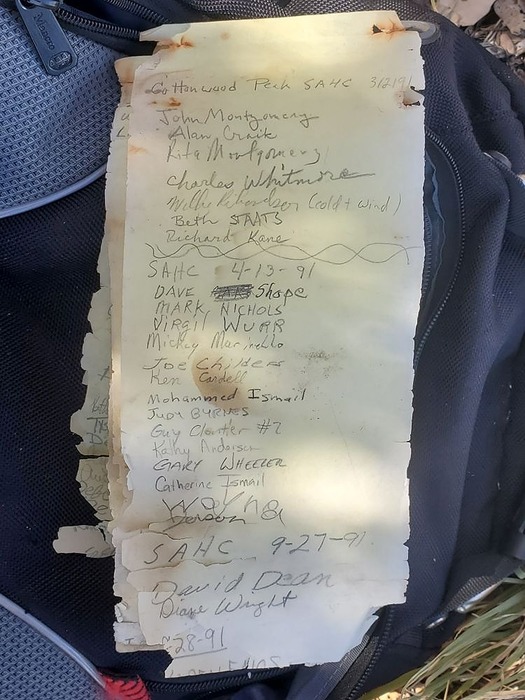 Cottonwood Peak SAHC 3/2/91
John Montgomery
Alan Craik
Rita Montgomery
Charles Whitmore
Richardson (cold + wind)
Beth STAATS
Richard Kane
SAHC 4-13-91
DAVE Shope
MARK NICHOLS
VIRGIL WURR
Mickey
Joe Childers
Ken Cardell
Mohammed Ismail
Judy BYRNES
Guy #2
Kathy Anderson
GARY WHEELER
Catherine Ismail
Wayne
SAHC 9-27-91
David Dean
Diane Wright
28-91